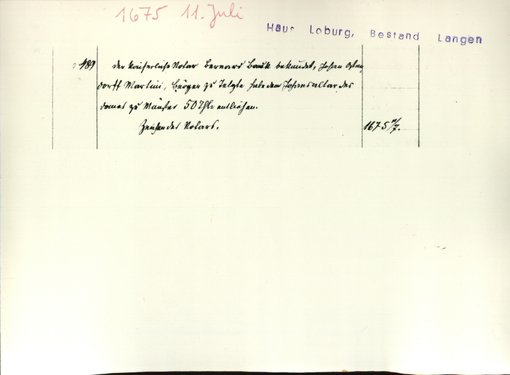 1675 11. Juli
Haus Loburg, Bestand Langen
189 der kaiserliche Notar Bernard bekundet, Johan
dorff Martini, Bürger zu Telgte habe dem Johansaltar des
domes zu Münster 50 Thlr entliehen.
Zeichen des Notars. 1675 11/7.